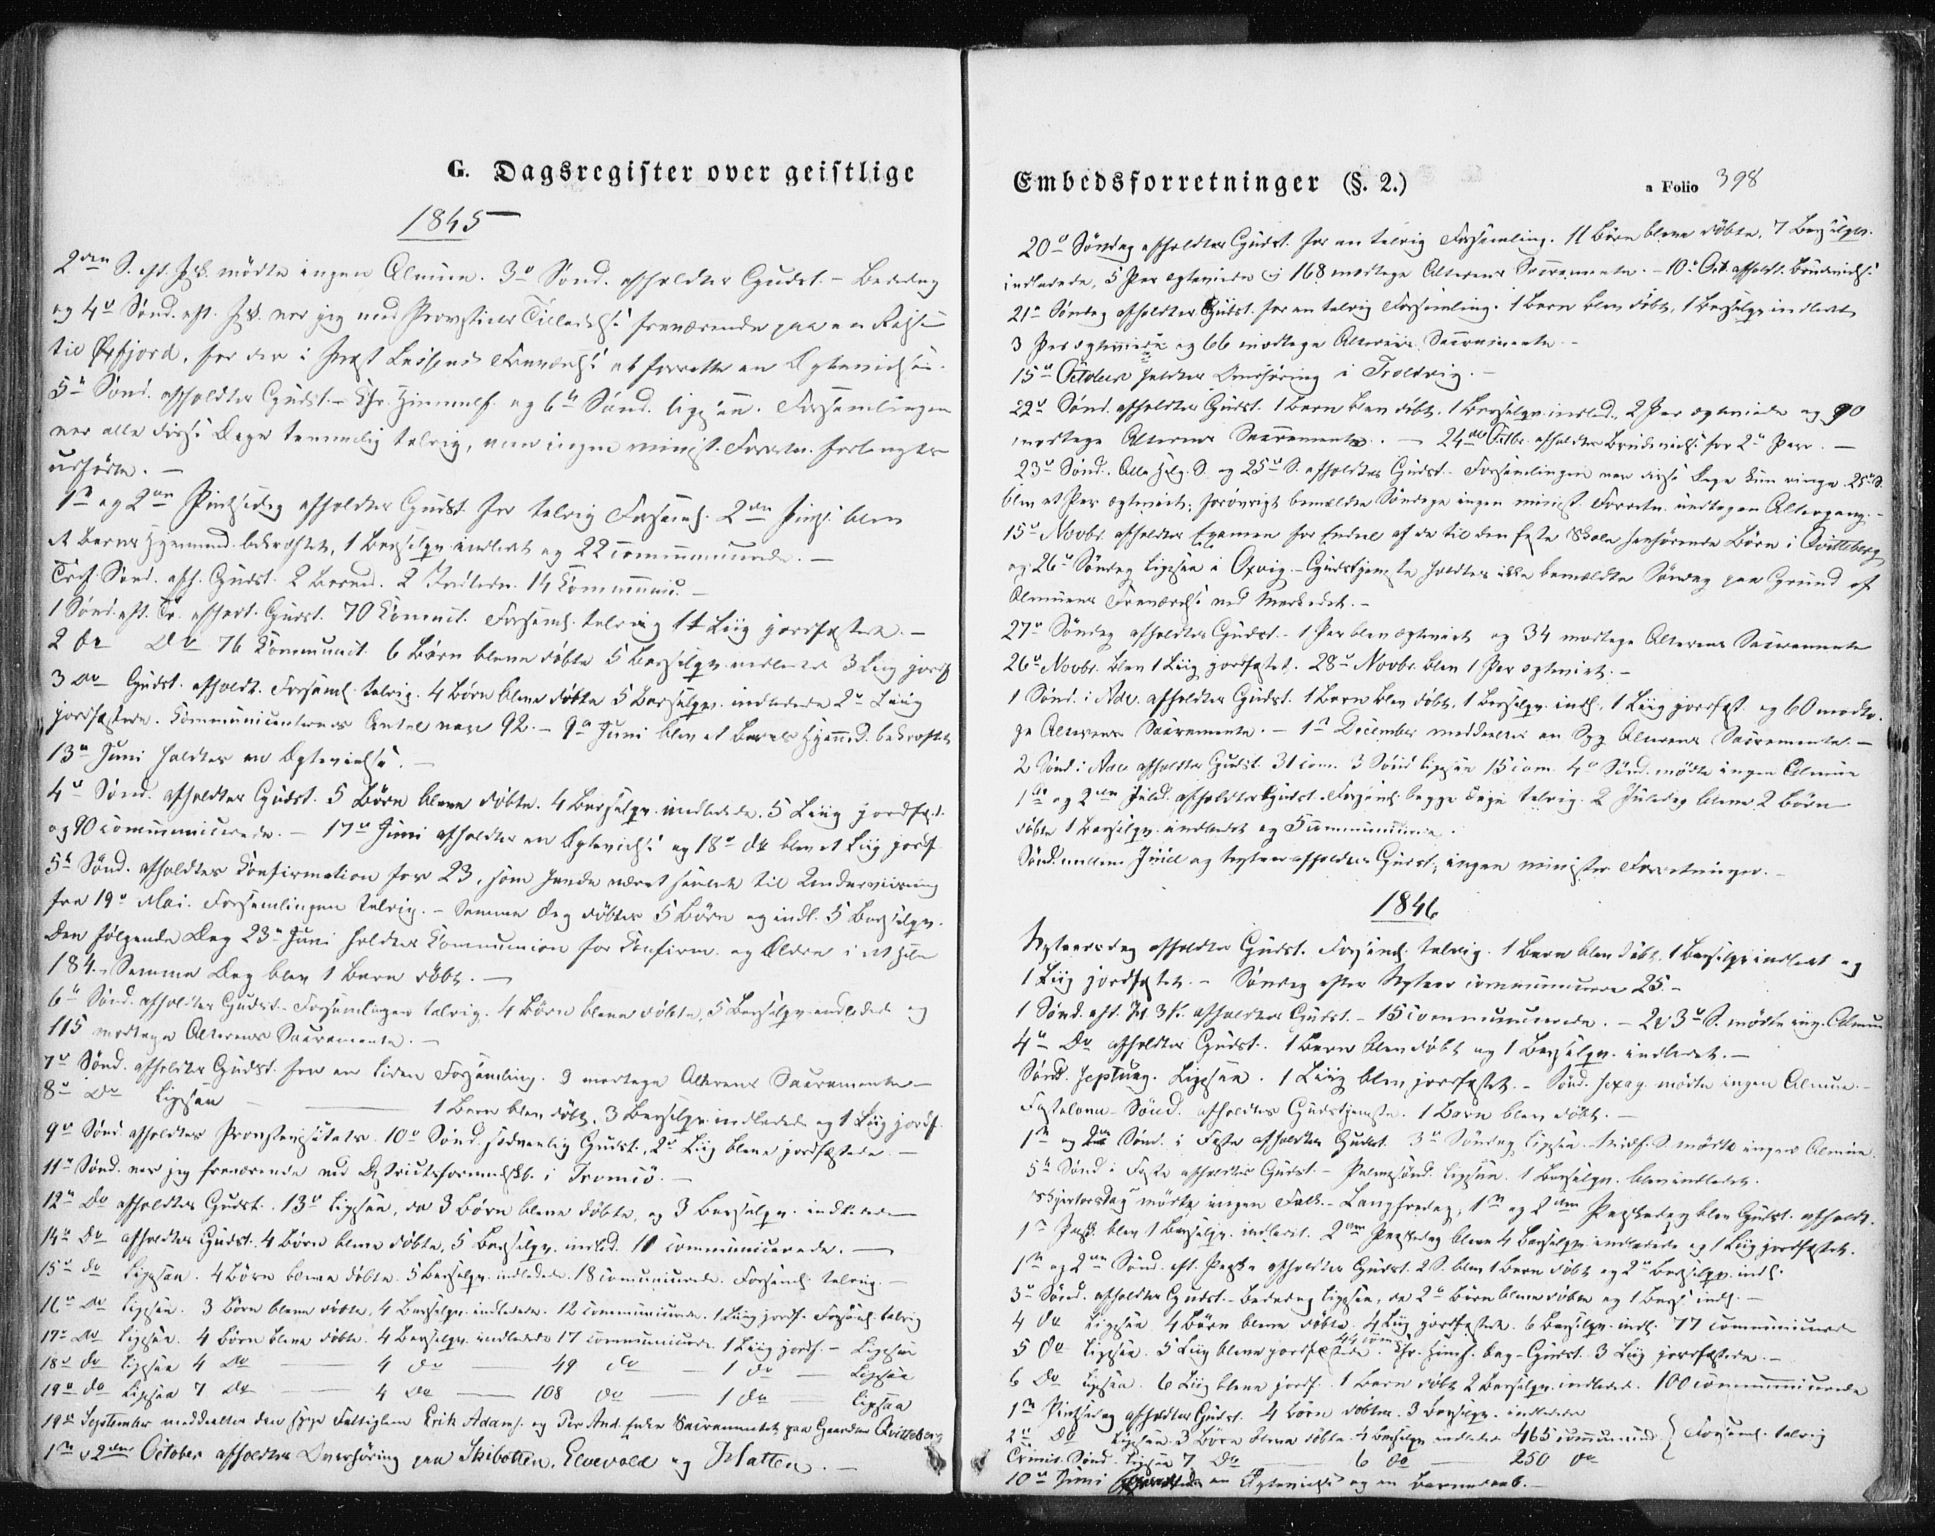 G. Dagsregister over geistlige
1845
2den S. eft. Psk. mødte ingen Almue. 3d Sønd. afholdtes Gudst. - Bededag
og 4d Sønd. eft. Psk. var jeg med Provstiets Tilladelse fraværende paa en Rejse
til Øxfjord, for der i Fraværelse at forrette en Egtevielse.
5te Sønd. afholdtes Gudst. - Chr. Himmelf. og 6te Sønd. ligesaa. Forsamlingen
var alle disse Dage temmelig talrig, men ingen minist. Forretn. forlangtes
udførte. -
1ste og 2den Pintsedag afholdtes Gudst. for talrig Forsaml. 2den Pints. blev
et Barns Hjemmed. bekræftet, 1 Barselqv. indledt og 22 communicerede. -
Tref. Sønd. afh. Gudst. 2 Barned. 2 Indledn. 14 Kommunic. -
1 Sønd. eft. Tr. afholdt. Gudst. 70 Komunic. Forsaml. talrig 1 Liig jordfæstede. -
2 do Do 76 Kommunic. 6 Børn bleve døbte 5 Barselqv. indledede 3 Liig jordf.
3 do Gudst. afholdt. Forsaml. talrig. 4 Børn bleve døbte 5 Barselqv. indledede 2 Liig
jordfæstede. Kommunicanternes Antal var 92. - 9d Juni blev et Barns Hjemmed. bekræftet
13de Juni holdtes en Egtevielse. -
4de Sønd. afholdtes Gudst. 5 Børn bleve døbte. 4 Barselqv. indledede. 5 Liig jordfæst.
og 90 communicerede. - 17de Juni afholdtes en Egtevielse og 18de do blev et Liig jordf.
5te Sønd. afholdtes Confirmation for 23, som havde været samlet til Underviisning
fra 19de Mai. Forsamlingen talrig. - Samme Dag døbtes 5 Børn og indl. 5 Barselqv.
Den følgende Dag 23de Juni holdtes Kommunion for Konfirm. og Ældre i et Hele
184. Samme Dag blev 1 Barn døbt. -
6te Sønd. afholdtes Gudst. Forsamlingen talrig. 4 Børn bleve døbte, 5 Barselqv. indledede og
115 modtoge Alterens Sacramente. -
7de Sønd. afholdtes Gudst. for en liden Forsamling. 9 modtoge Alterens Sacramente -
8de Do ligesaa - 1 Barn blev døbt. 3 Barselqv. indledede og 1 Liig jordf.
9de Sønd. afholdtes Provstevisitats. 10de Sønd. sædvanlig Gudst., 2de Liig bleve jordfæstede. -
11te Sønd. var jeg fraværende ved Districtsformandskb. i Tromsø. -
12te Do afholdtes Gudst. 13de ligesaa, da 3 Børn bleve døbte, og 3 Barselqv. indledede
14de Do afholdtes Gudst. 4 Børn bleve døbte, 5 Barselqv. indled. 11 communicerede. -
15de do ligesaa. 4 Børn bleve døbte. 5 Barselqv. indledede. 18 comunicerede. Forsaml. talrig. -
16de Do ligesaa. 3 Børn bleve døbte, 4 Barselqv. indledede. 12 communicerede. 1 Liig jordf. Forsaml. talrig
17de Do ligesaa. 4 Børn bleve døbte. 4 Barselqv. indledede 17 communicerede 1 Liig jordf. - Ligesaa
18de do ligesaa 4 do - 4 do - 49 do - 1 do - Ligesaa
19de do ligesaa 7 do - 4 do - 108 do - 1 do - ligesaa
19de September meddeeltes den syge Fattiglem Erik Adams. og Per And. Enke Sacramentet paa Gaarden Qvitteberg
1ste og 2den October afholdtes Overhøring paa Skibotten, Elvevold og Hatten. -
Embedsforretninger (§. 2.)
a Folio 398
20de Søndag afholdtes Gudst. for en talrig Forsamling. 11 Børn bleve døbte, 7 Barselqv.
indledede, 5 Par egteviede og 168 modtoge Alterens Sacramente. - 10de Oct. afholdt. Brudevielse
21de Søndag afholdtes Gudst. for en talrig Forsamling. 1 Barn blev døbt, 1 Barselqv. indledet
3 Par egteviede og 66 modtoge Alterens Sacramente. -
15de October holdtes Overhøring i Troldvig. -
22de Sønd. afholdtes Gudst. 1 Barn blev døbt. 1 Barselqv. indled. 2 Par egteviede og 90
modtoge Alterens Sacramente. - 24de Octbr. afholdtes Brudevielse for 2de Par. -
23de Sønd. Alle Helg. S. og 25de S. afholdtes Gudst. Forsamlingen var disse Dage kun ringe. 25de S.
blev et Par egteviet, forøvrigt bemældte Søndage ingen minist. Forretn. undtagen Altergang. -
15de Novbr. afholdtes Examen for Endeel af de til den faste Skole henhørende Børn i Qvitteberg
og 26de Søndag ligesaa i Oxvig. - Gudstjeneste holdtes ikke bemældte Søndag paa Grund af
Almuens Fraværelse ved Markedet. -
27de Søndag afholdtes Gudst. - 1 Par blev egteviet og 34 modtoge Alterens Sacramente
26de Novbr. blev 1 Liig jordfæstet. 28de Novbr. blev 1 Par egteviet. -
1 Sønd. i Adv. afholdtes Gudst. 1 Barn blev døbt, 1 Barselqv. indl., 1 Liig jordfæst. og 60 modto-
ge Alterens Sacramente. - 1ste December meddeeltes en Syg Alterens Sacramente. -
2 Sønd. i Adv. afholdtes Gudst. 31 com. 3 Sønd. ligesaa 15 com. 4de Sønd. mødte ingen Almue
1ste og 2den Juled. afholdtes Gudst. Forsaml. begge Dage talrig. 2 Juledag bleve 2 Børn
døbte 1 Barselqv. indledet og 5 communicerede.
Sønd. mellem Juul og Nytaar afholdtes Gudst., ingen minister. Forretninger. -
1846
Nytaarsdag afholdtes Gudst. Forsaml. talrig. 1 Barn blev døbt, 1 Barselqv. indledt og
1 Liig jordfæstet. - Søndag efter Nytaar communicerede 25. -
1 Sønd. eft. H. 3 K. afholdtes Gudst. - 15 communicerede. - 2 og 3de S. mødte ing. Almue
4de Do afholdtes Gudst. 1 Barn blev døbt og 1 Barselqv. indledet. -
Sønd. Septuag. Ligesaa. 1 Liig blev jordfæstet. - Sønd. Sexag. mødte ingen Almue. -
Fastelavns-Sønd. afholdtes Gudstjeneste. 1 Barn blev døbt. -
1ste og 2den Sønd. i Faste afholdtes Gudst. 3de Søndag ligesaa. Midf. S. mødte ingen Almue.
5te Sønd. i Faste afholdtes Gudst. - Palmesønd. ligesaa. 1 Barselqv. blev indledet.
Skjertorsdag mødte ingen Folk. - Langfredag, 1ste og 2den Paaskedag blev Gudst. afholdt.
1ste Paask. blev 1 Barselqv. indledet. 2den Paaskedag bleve 4 Barselqv. indledede og 1 Liig jordfæstet.
1ste og 2den Sønd. eft. Paaske afholdtes Gudst. 2 S. blev 1 Barn døbt og 2de Barselqv. indl.
3de Sønd. afholdtes Gudst. - Bededag ligesaa, da 2de Børn bleve døbte og 1 Bars. indl. -
4 do Ligesaa 4 Børn bleve døbte. 4 Liig jordfæstede. 6 Barselqv. indl. 77 communicerede
44 com.
5 do ligesaa. 5 Liig bleve jordfæstede. Chr. Himf. Dag - Gudst. 3 Liig jordfæstede. -
6 do ligesaa. 6 Liig bleve jordf. 1 Barn døbt 2 Barselqv. indledede. 100 communicerede
1ste Pintsedag afholdtes Gudst. 4 Børn døbtes. 3 Barselqv. indledede
2den do ligesaa. 3 Børn bleve døbte 4 Barselqv. indledede 465 communic. } Forsaml. talrig
Trinit. Sønd. ligesaa 7 do - 6 do - 250 do
10de Juni en Egtevielse og en Barnedaab. -